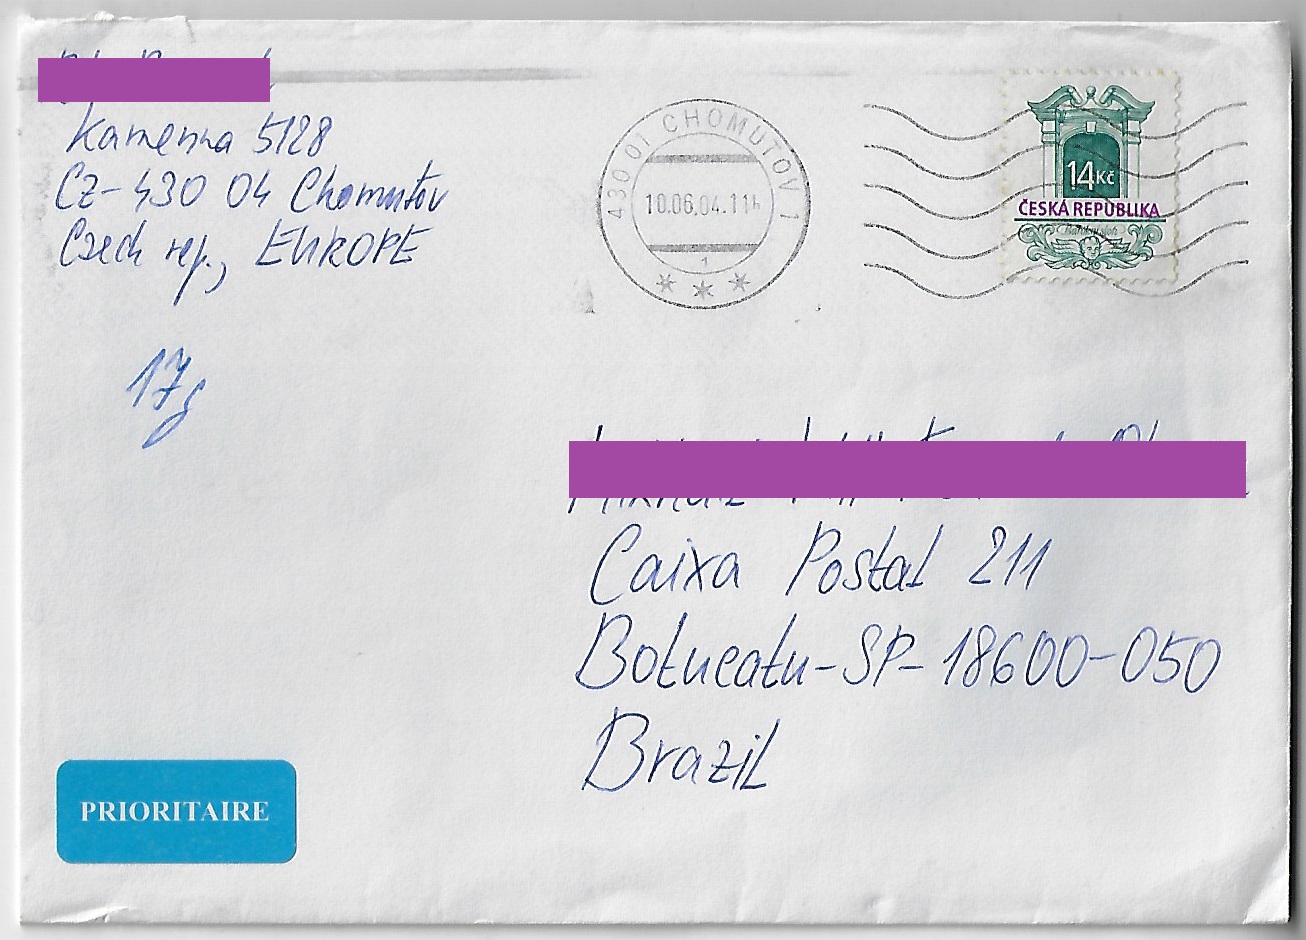 Kamenna 5128
CZ-430 04 Chomutov
Czech rep., EUROPE
17g
430 01 CHOMUTOV 1
10.06.04.11h
1
14Kč
ČESKÁ REPUBLIKA
Barokní sloh
Caixa Postal 211
Botucatu-SP-18600-050
Brazil
PRIORITAIRE